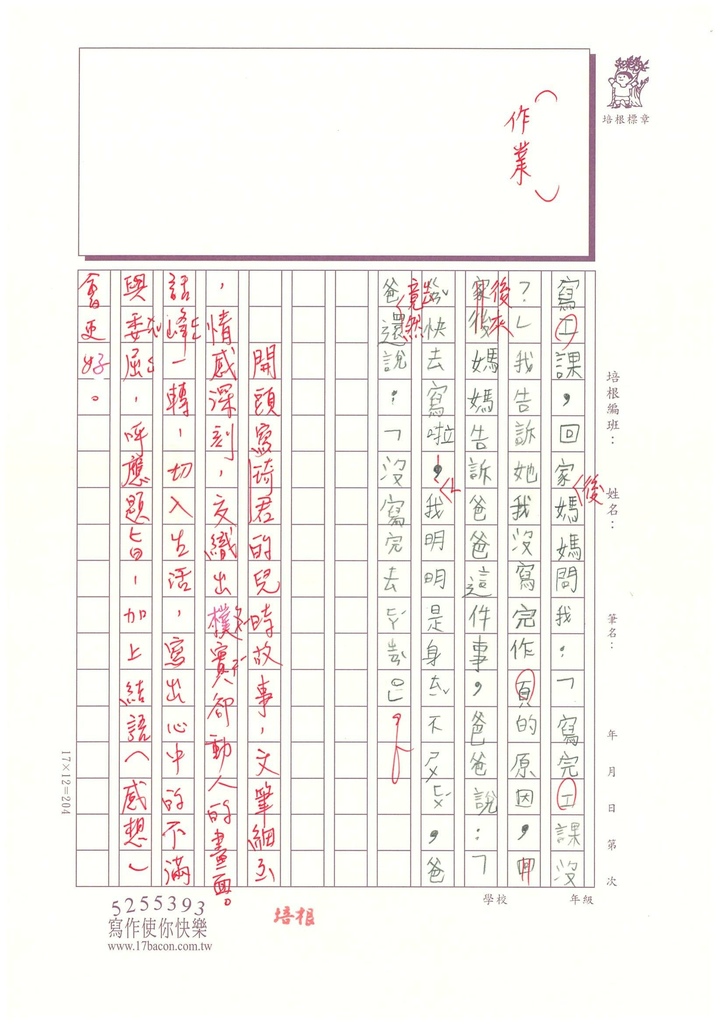 培根標章
（作業）
寫工課，回家媽媽問我：「寫完工課沒
後
？」我告訴她我沒寫完作頁的原因，
後來
家後媽媽告訴爸爸這件事，爸爸說：「
快去寫啦，我明明是身ㄊㄧˇ不ㄕㄨ ，爸
竟然
爸還說：「沒寫完去
開頭寫琦君的兒時故事，文筆細
，情感深刻，交織出樸實卻動人的畫面。
話峰一轉，切入生活，寫出心中的不滿
與委屈，呼應題旨，加上結語（感想）
會更好。
培根編班：
姓名：
筆名：
年 月 日 第 次
學校
年級
17×12=204
5255393
寫作使你快樂
www.17bacon.com.tw
培根